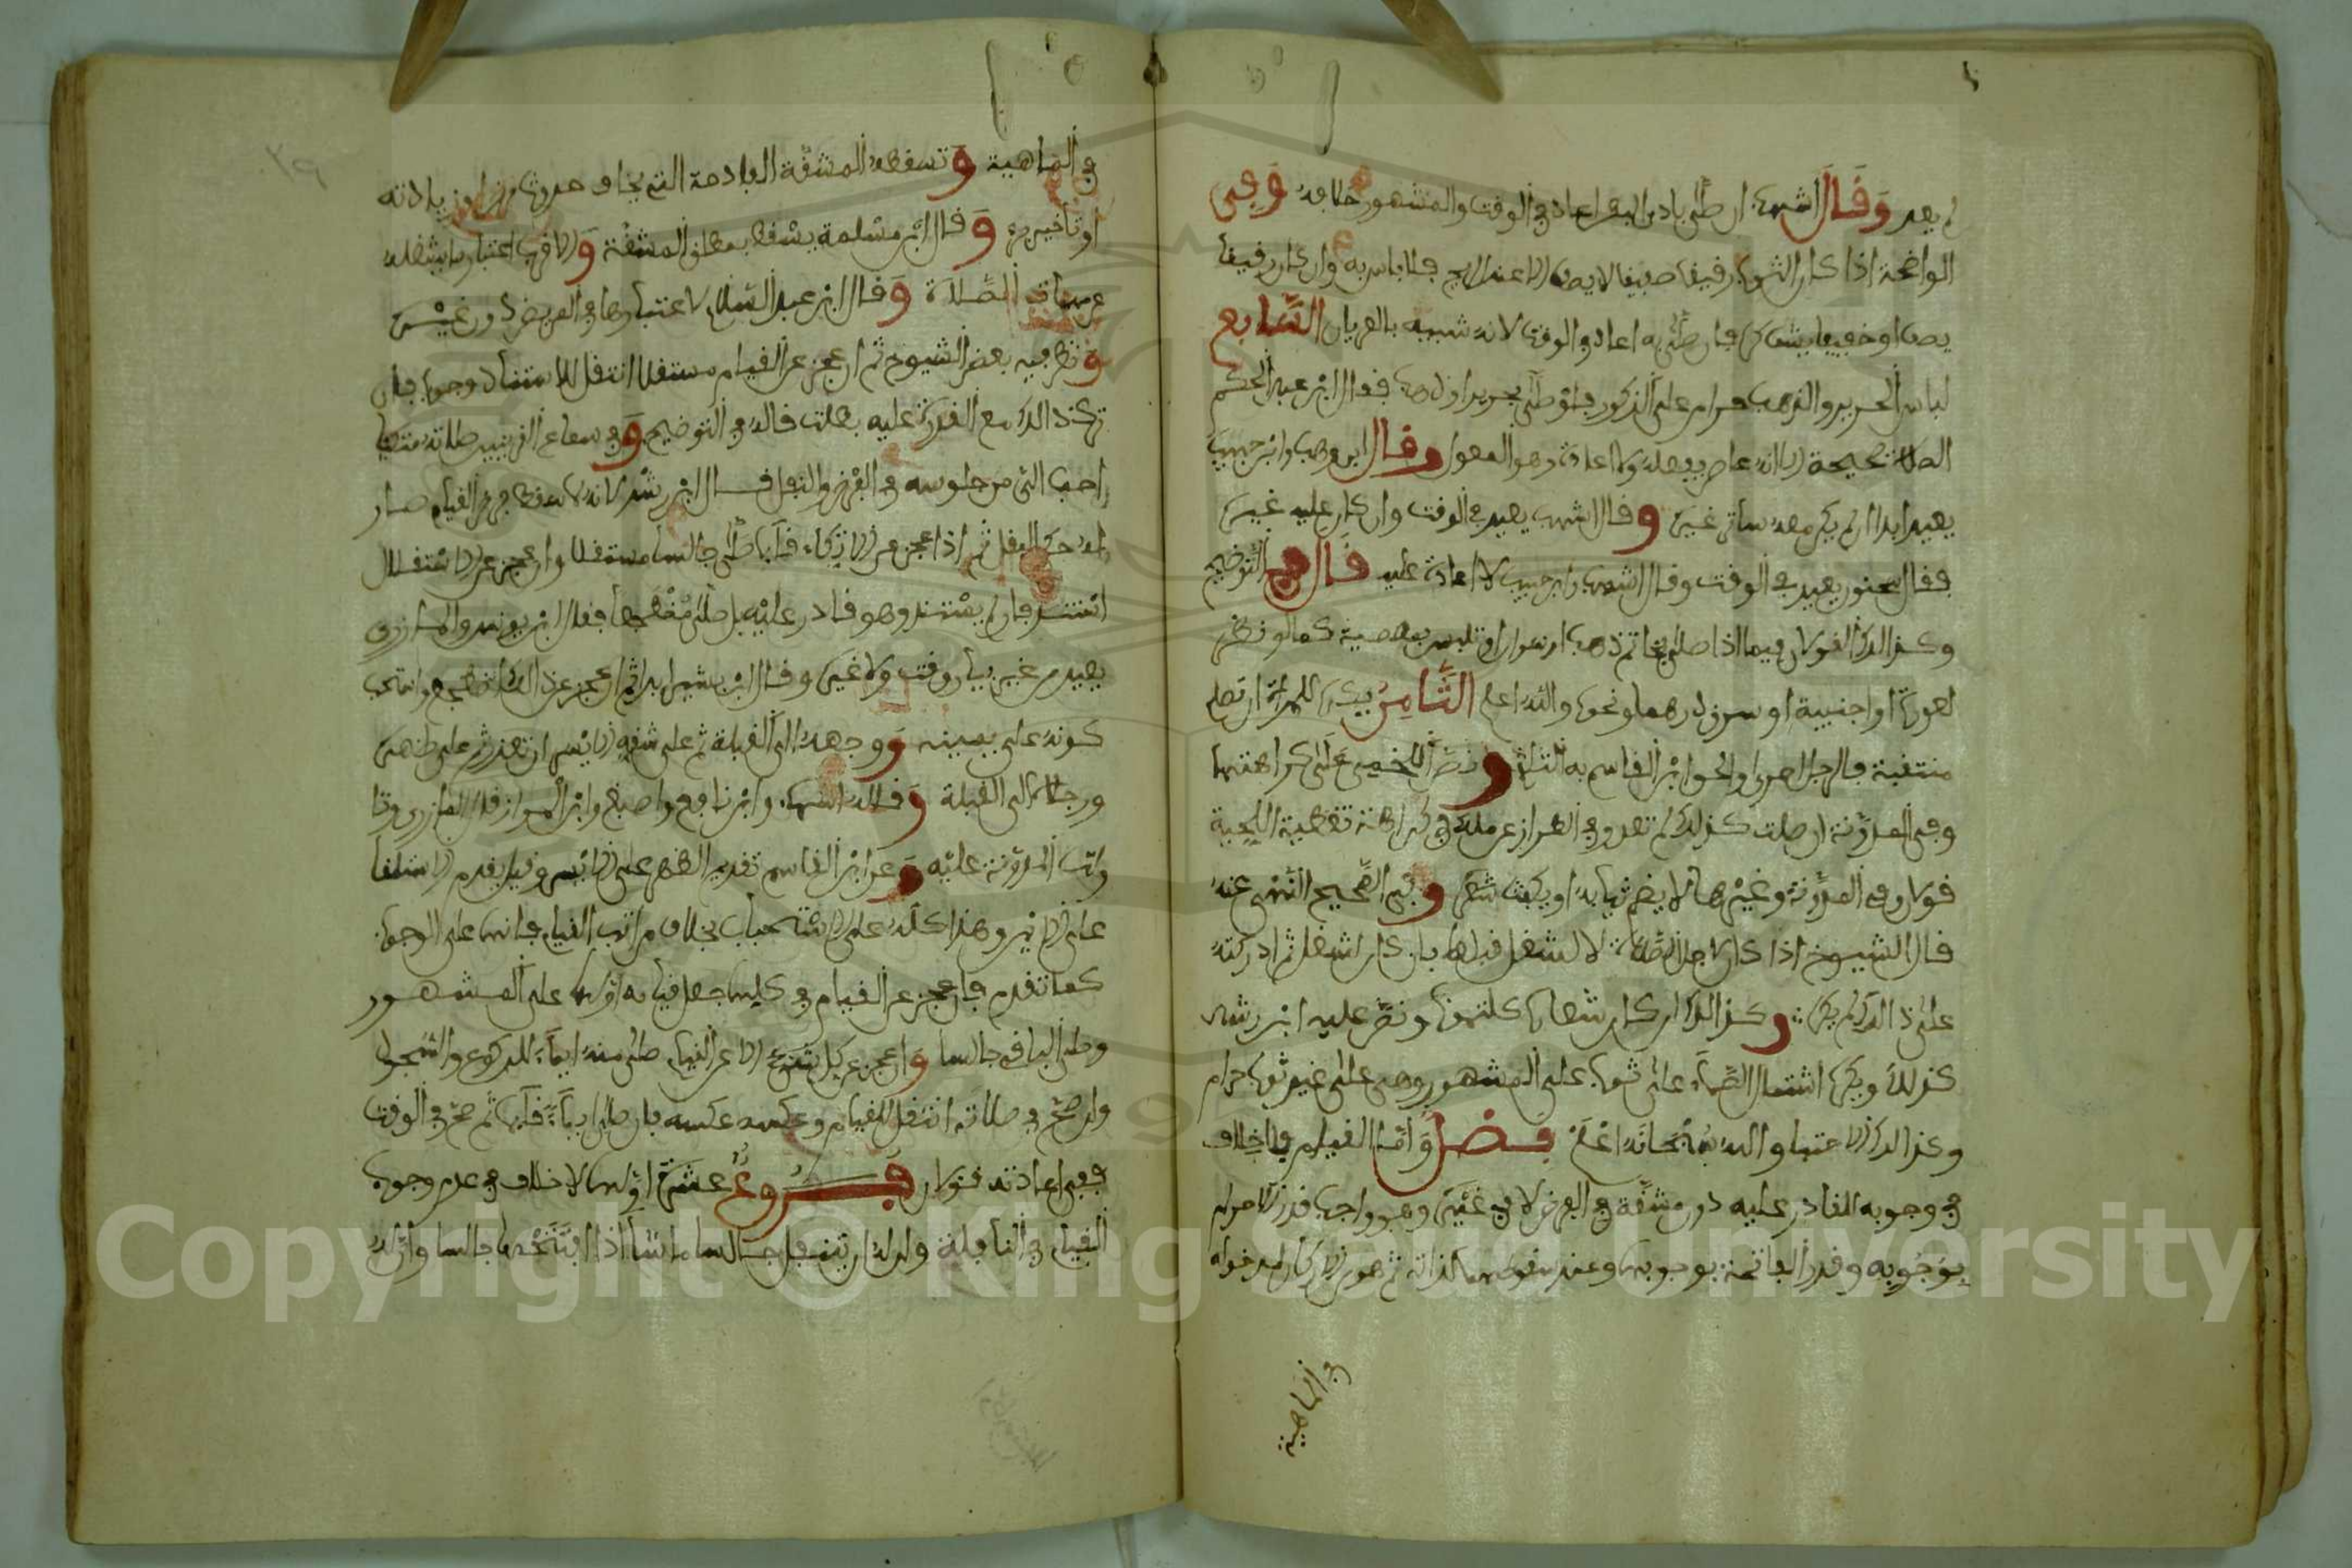 لم يعد وقال اشهب ان صلى بادى الفخذ اعاد في الوقت والمشهور خلافه وفي
الواضحة اذا كان الثوب رقيقا صفيقا لا يصف الا عند الريح فلا باس به وان كان رقيقا
يصف او خفيفا يشف فان صلى به اعاد في الوقت لانه شبيه بالعريان السابع
لباس الحرير والذهب حرام على الذكور فلو صلى بحرير او ذهب فقال ابن عبد الحكم
الصلاة صحيحة الا انه عاص بفعله ولا اعادة وهو المعول وقال ابن وهب وابن حبيب
يعيد ابدا ان لم يكن معه ساتر غيره وقال اشهب يعيد في الوقت وان كان عليه غيره
فقال سحنون يعيد في الوقت وقال اشهب وابن حبيب لا اعادة عليه قال في التوضيح
وكذلك القولان فيما اذا صلى بخاتم ذهب او سوار او تلبس بمعصية كما لو نظر
لعورة او اجنبية او سرق درهما ونحوه والله اعلم الثامن يكره للمراة ان تصلي
منتقبة قال ابن القاسم به التلثم ونص اللخمي على كراهتها
وفي المدونة ان صلت كذلك لم تعد وفي الطراز عن ملك في كراهة تغطية اللحية
قولان وفي المدونة وغيرها لا يضم ثيابه او يكفت شعره وفي الصحيح النهي عنه
قال الشيوخ اذا كان لاجل الصلاة لا لشغل قبلها بان كان لشغل ثم ادركته
على ذلك لم يكره وكذلك ان كان شعاره كلتمونة ونص عليه ابن رشد
كذلك ويكره اشتمال الصماء على ثوب على المشهور وهي على غير ثوب حرام
وكذلك الاحتباء والله سبحانه اعلم فصل واما القيام فلا خلاف
في وجوبه للقادر عليه دون مشقة في الفرض لا في غيره وهو واجب قدر الاحرام
بوجوبه وقدر الفاتحة بوجوبها وعند سقوطها لذاته ثم هو ركن لدخوله
في الماهية
٣٩
في الماهية وتسقطه المشقة الفادحة التي يخاف حدوث مرض او زيادته
او تاخير برء وقال ابن مسلمة يسقط بمطلق المشقة والاقرب اعتبار ما يشغله
عن الصلاة وقال ابن عبد السلام لاعتبارها في المريض دون غيره
ونظر فيه بعض الشيوخ ثم ان عجز عن القيام مستقلا انتقل للاستناد وجوبا فان
ترك ذلك مع القدرة عليه بطلت قاله في التوضيح وفي سماع القرينين صلاته متكئا
احب الي من جلوسه في الفرض والنفل قال ابن رشد لانه لما سقط فرض القيام صار
له حكم النفل ثم اذا عجز عن الاتكاء قائما صلى جالسا مستقلا وان عجز عن الاستقلال
استند فان لم يستند وهو قادر عليه بل صلى مضطجعا فقال ابن يونس والمازري
يعيد من غير بيان وقت ولا غيره وقال ابن بشير ابدا ثم ان عجز عن ذلك اضطجع واستحب
كونه على يمينه ووجهه الى القبلة ثم على شقه الايسر ان تعذر ثم على ظهره
ورجلاه الى القبلة وقاله اشهب وابن نافع واصبغ وابن المواز قال المازري
المدونة عليه وعن ابن القاسم تقديم الظهر على الايسر وقيل يقدم الاستلقا
على الايمن وهذا كله على الاستحباب بخلاف مراتب القيام فانها على الوجوب
كما تقدم فان عجز عن القيام في كلها جعل قيامه اولها على المشهور
وصلى الباقي جالسا وان عجز عن كل شيء الا عن القيام صلى منه ايماء للركوع والسجود
وان صح في صلاته انتقل للقيام وعكسه عكسه فان صلى ايماء قائما ثم صح في الوقت
ففي اعادته قولان فروع عشرة اولها لا خلاف في عدم وجوب
القيام في النافلة وله ان يتنفل جالسا ما شاء اذا افتتحها جالسا وان له